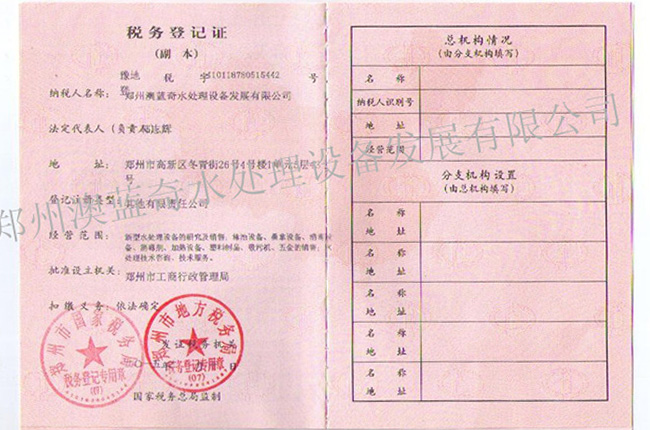 税务登记证
(副本)
豫地 税 字410118780515442 号
纳税人名称: 郑州澳蓝奇水处理设备发展有限公司
法定代表人 (负责
地 址: 郑州市高新区冬青街26号4号楼1单元5层
登记注册类型: 其他有限责任公司
经营范围: 新型水处理设备的研发及销售;
处理技术咨询、技术服务。
批准设立机关: 郑州市工商行政管理局
扣缴义务: 依法确定
发证税务机关
郑州市国家税务局
税务登记专用章
郑州市地方税务局
税务登记专用章
(07)
国家税务总局监制
总机构情况
(由分支机构填写)
名 称
纳税人识别号
地 址
经营范围
分支机构设置
(由总机构填写)
名 称
地 址
名 称
地 址
名 称
地 址
名 称
地 址
名 称
地 址
郑州澳蓝奇水处理设备发展有限公司